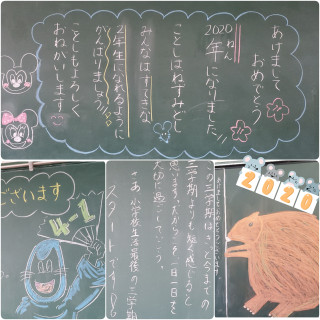 あけまして
おめでとう
2020年になりました!!
ねん
ことしはねずみどし
みんなはすてきな
2年生になれるように
がんばりましょう!!
ことしもよろしく
おねがいします
ございます
4-1
の三学期はきっとあっという
三学期よりも短く感じると
思います。だから、今日一日一日を
大切に過ごしていこう。
さあ、小学校生活最後の三学期
スタートです!
2020